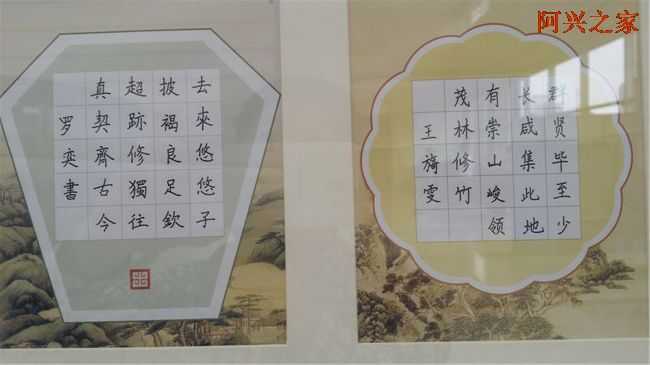 阿兴之家
去來悠悠子
披褐良足欽
超跡修獨往
真契齊古今
罗奕書
群贤毕至少
长咸集此地
有崇山峻领
茂林修竹
王旖雯